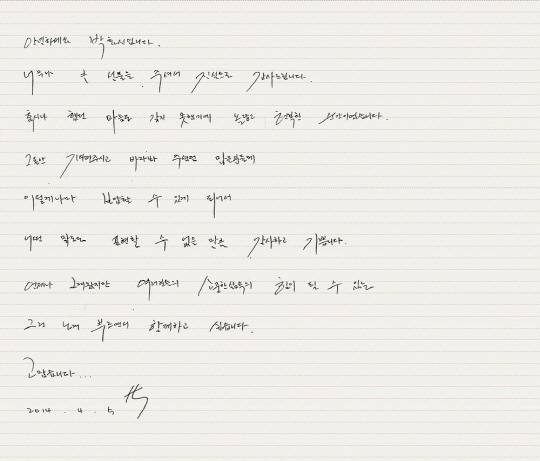 안녕하세요 박효신입니다.
너무나 큰 선물을 주셔서 진심으로 감사드립니다.
혹시나 했던 마음도 갖지 못했기에 놀랍고 행복한 순간이었습니다.
그동안 기다려주시고 바라봐 주셨던 많은분들께
이렇게나마 보답할 수 있게 되어서
어떤 말로도 표현할 수 없을 만큼 감사하고 기쁩니다.
언제나 그래왔지만 여러분들의 소중한 삶속의 힘이 될 수 있는
그런 노래 부르면서 함께하고 싶습니다.
고맙습니다...
2014. 4. 5